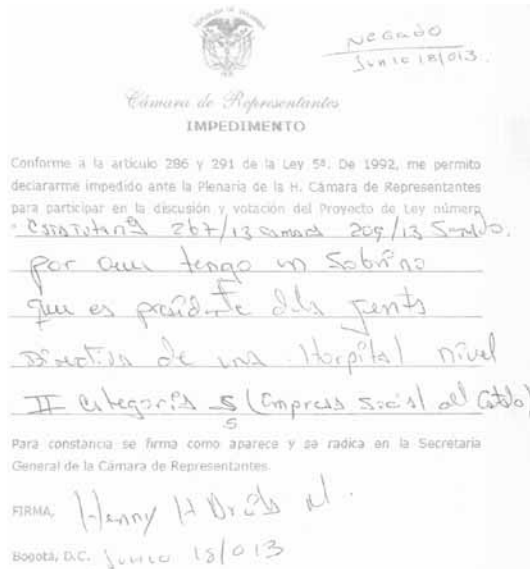 NEGADO
Junio 18/013.
Cámara de Representantes
IMPEDIMENTO
Conforme a la artículo 286 y 291 de la Ley 5ª. De 1992, me permito
declararme impedido ante la Plenaria de la H. Cámara de Representantes
para participar en la discusión y votación del Proyecto de Ley número
Estatutaria 267/13 Camara 209/13 Senado.
por que tengo un Sobrino
que es presidente de la junta
Directiva de una Hospital nivel
II Categoria 5 (Empresa Social del Estado)
5
Para constancia se firma como aparece y se radica en la Secretaria
General de la Cámara de Representantes.
FIRMA, Henry H
Bogotá, D.C. Junio 18/013